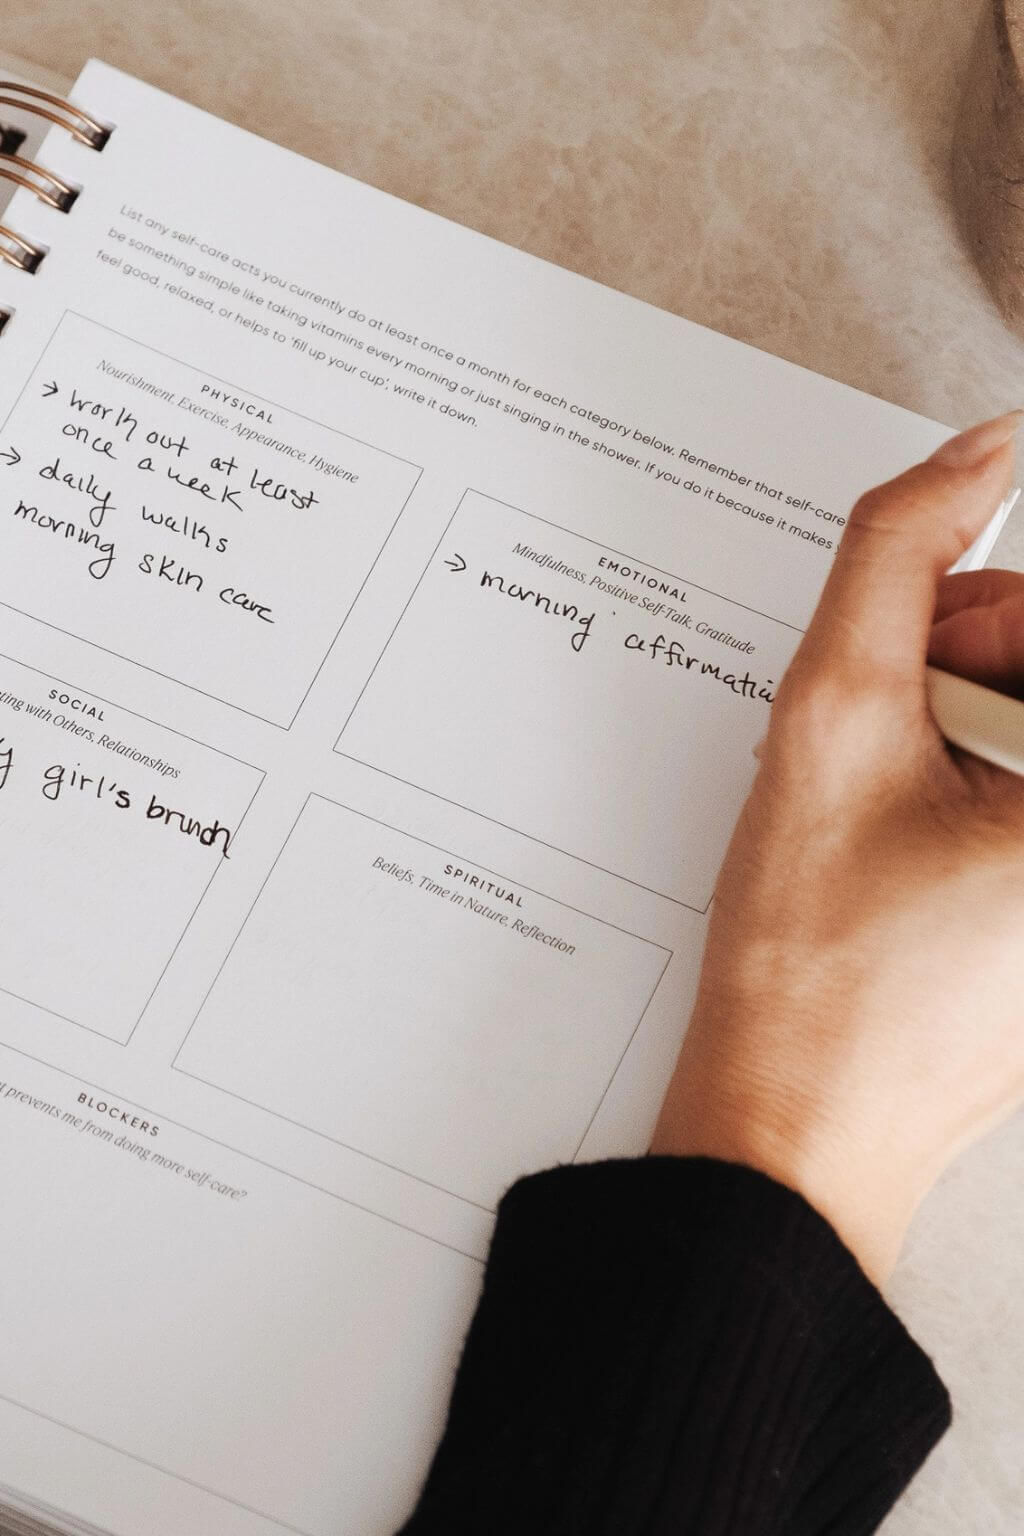 List any self-care acts you currently do at least once a month for each category below. Remember that self-care
be something simple like taking vitamins every morning or just singing in the shower. If you do it because it makes
feel good, relaxed, or helps to 'fill up your cup', write it down.
PHYSICAL
Nourishment, Exercise, Appearance, Hygiene
→ work out at least
once a week
→ daily walks
morning skin care
EMOTIONAL
Mindfulness, Positive Self-Talk, Gratitude
→ morning affirmatio
SOCIAL
with Others, Relationships
girl's brunch
SPIRITUAL
Beliefs, Time in Nature, Reflection
BLOCKERS
prevents me from doing more self-care?